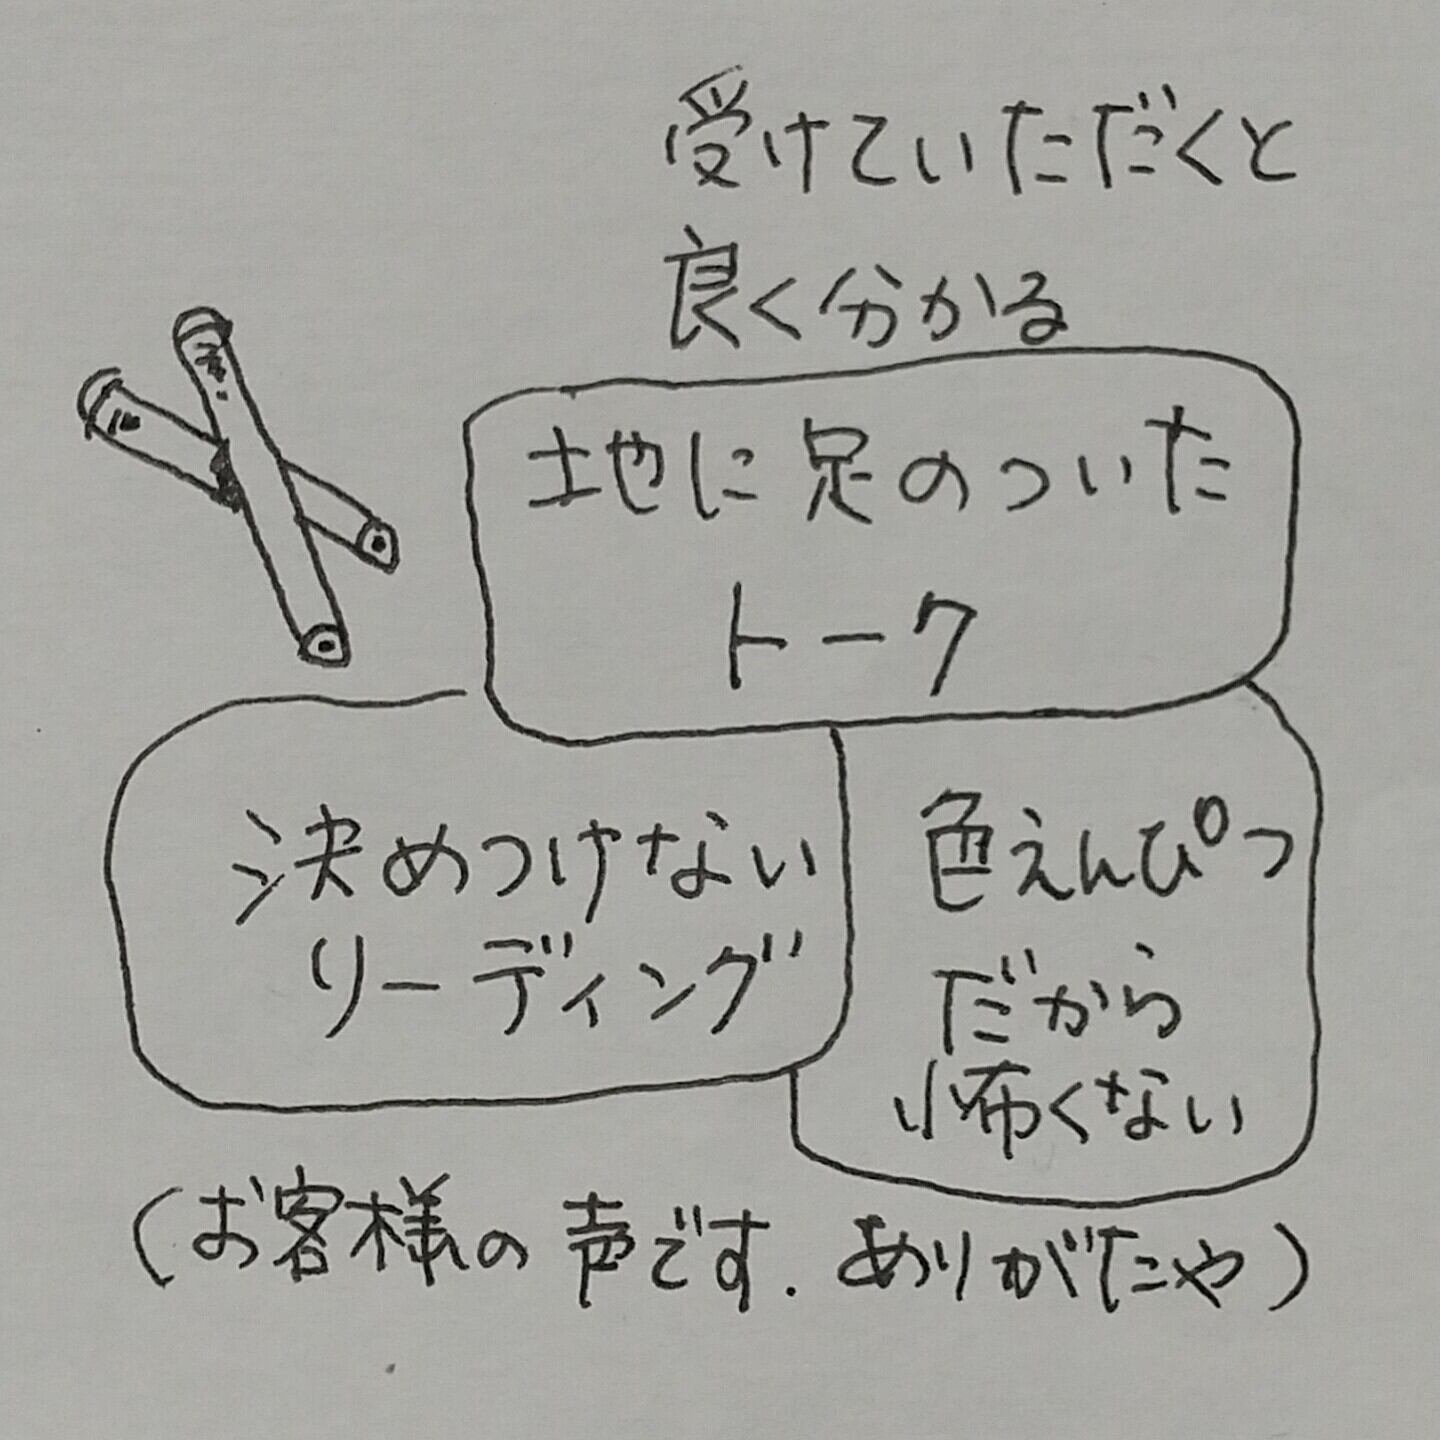 受けていただくと
良く分かる
地に足のついた
トーク
決めつけない
リーディング
色えんぴつ
だから
怖くない
(お客様の声です.ありがたや)